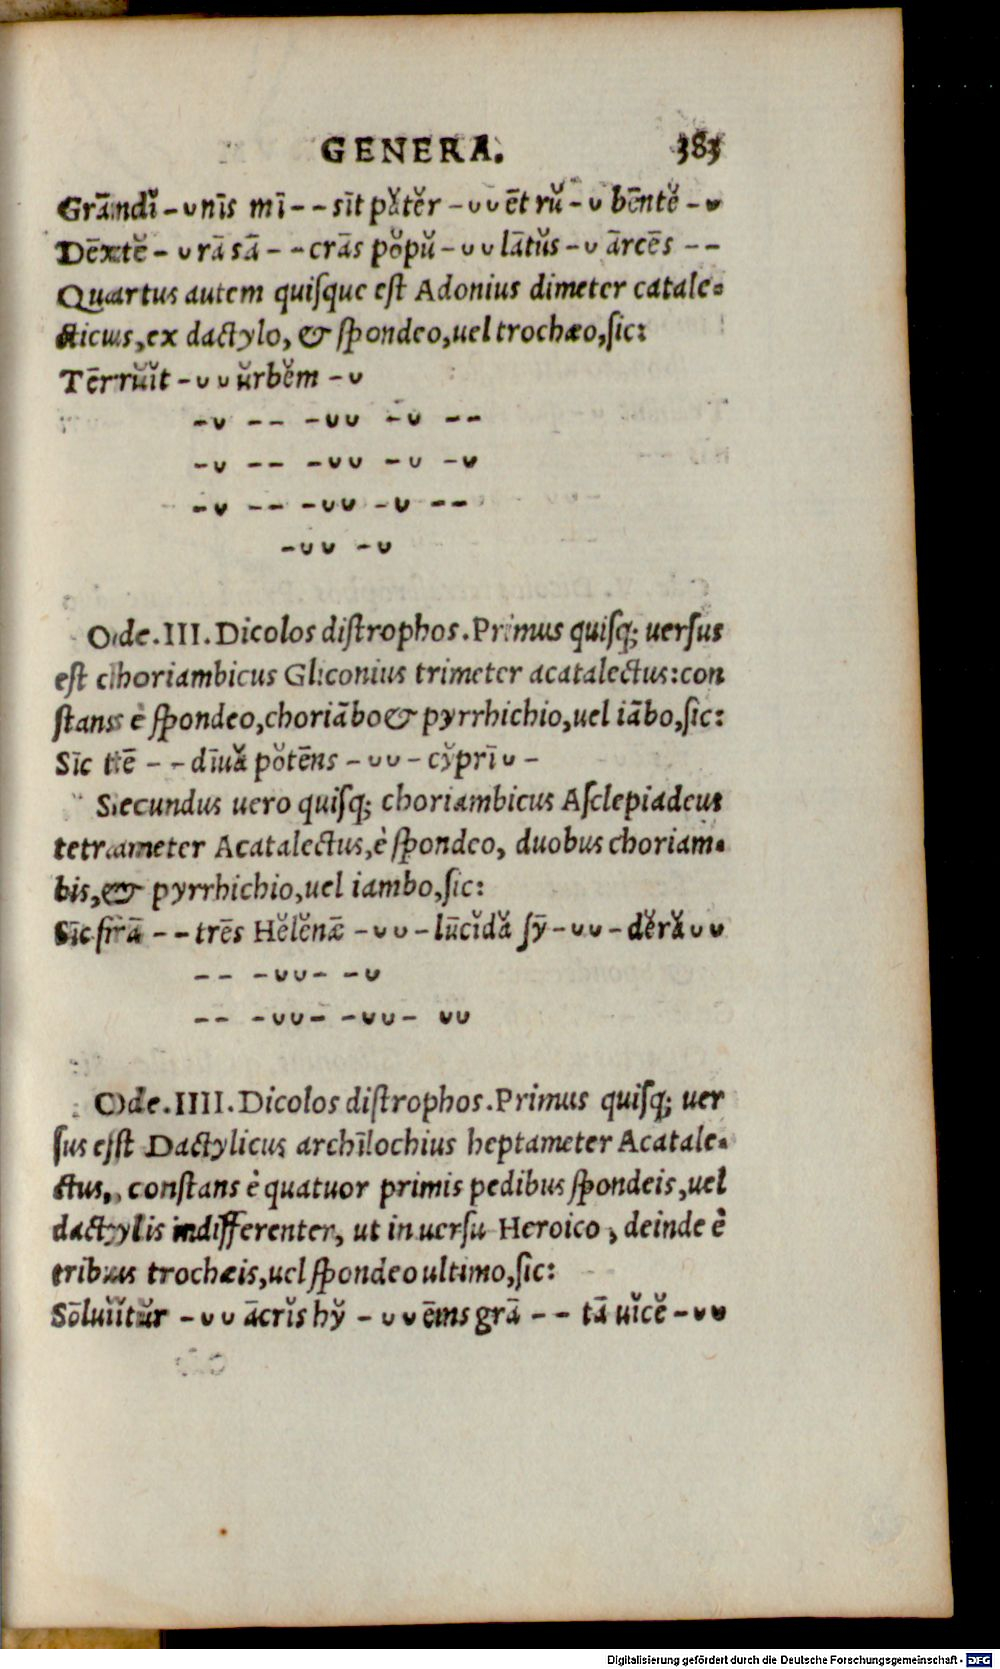 GENERA. 383
Grā̆ndĭ – ᴗ nīs mī – – sīt pătĕr – ᴗ ᴗ ēt rŭ – ᴗ bēntĕ – ᴗ
Dēxtĕ – ᴗ rā sā – – crās pŏpŭ – ᴗ ᴗ lātŭs – ᴗ ārcēs – –
Quartus autem quiſque eſt Adonius dimeter catale⸗
cticus, ex dactylo, & ſpondeo, uel trochæo, ſic:
Tērrŭĭt – ᴗ ᴗ ŭrbĕm – ᴗ
– ᴗ – – – ᴗ ᴗ – ᴗ – –
– ᴗ – – – ᴗ ᴗ – ᴗ – ᴗ
– ᴗ – – – ᴗ ᴗ – ᴗ – –
– ᴗ ᴗ – ᴗ
Ode. III. Dicolos diſtrophos. Primus quiſq; uerſus
eſt choriambicus Gliconius trimeter acatalectus: con
ſtans è ſpondeo, choriābo & pyrrhichio, uel iābo, ſic:
Sīc tē – – dīuă pŏtēns – ᴗ ᴗ – cy̆prī ᴗ –
Secundus uero quiſq; choriambicus Aſclepiadeus
tetrameter Acatalectus, è ſpondeo, duobus choriam⸗
bis, & pyrrhichio, uel iambo, ſic:
Sīc frā – – trēs Hĕlĕnǣ – ᴗ ᴗ – lūcĭdă ſȳ – ᴗ ᴗ – dĕră ᴗ ᴗ
– – – ᴗ ᴗ – – ᴗ
– – – ᴗ ᴗ – – ᴗ ᴗ – ᴗ ᴗ
Ode. IIII. Dicolos diſtrophos. Primus quiſq; uer
ſus eſt Dactylicus archilochius heptameter Acatale⸗
ctus, conſtans è quatuor primis pedibus ſpondeis, uel
dactylis indifferenter, ut in uerſu Heroico, deinde è
tribus trochæis, uel ſpondeo ultimo, ſic:
Sōluĭtŭr – ᴗ ᴗ ācrĭs hy̆ – ᴗ ᴗ ēms grā – – tā uĭcĕ – ᴗ ᴗ
Digitalisierung gefördert durch die Deutsche Forschungsgemeinschaft - DFG